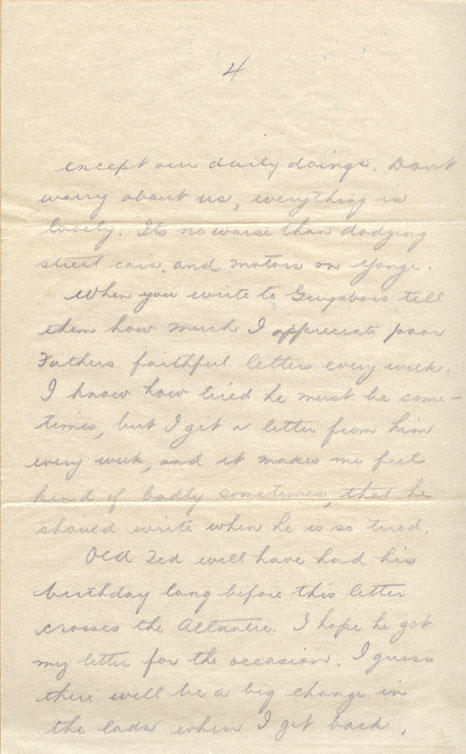 4
except our daily doings. Dont
worry about us, everything is
lovely. Its no worse than dodging
street cars, and motors on Yonge.
When you write to Guysboro tell
them how much I appreciate poor
Fathers faithful letters every week.
I know how tired he must be some-
times, but I get a letter from him
every week, and it makes me feel
kind of badly sometimes, that he
should write when he is so tired.
Old Ted will have had his
birthday long before this letter
crosses the Atlantic. I hope he got
my letter for the occasion. I guess
there will be a big change in
the lads when I get back.